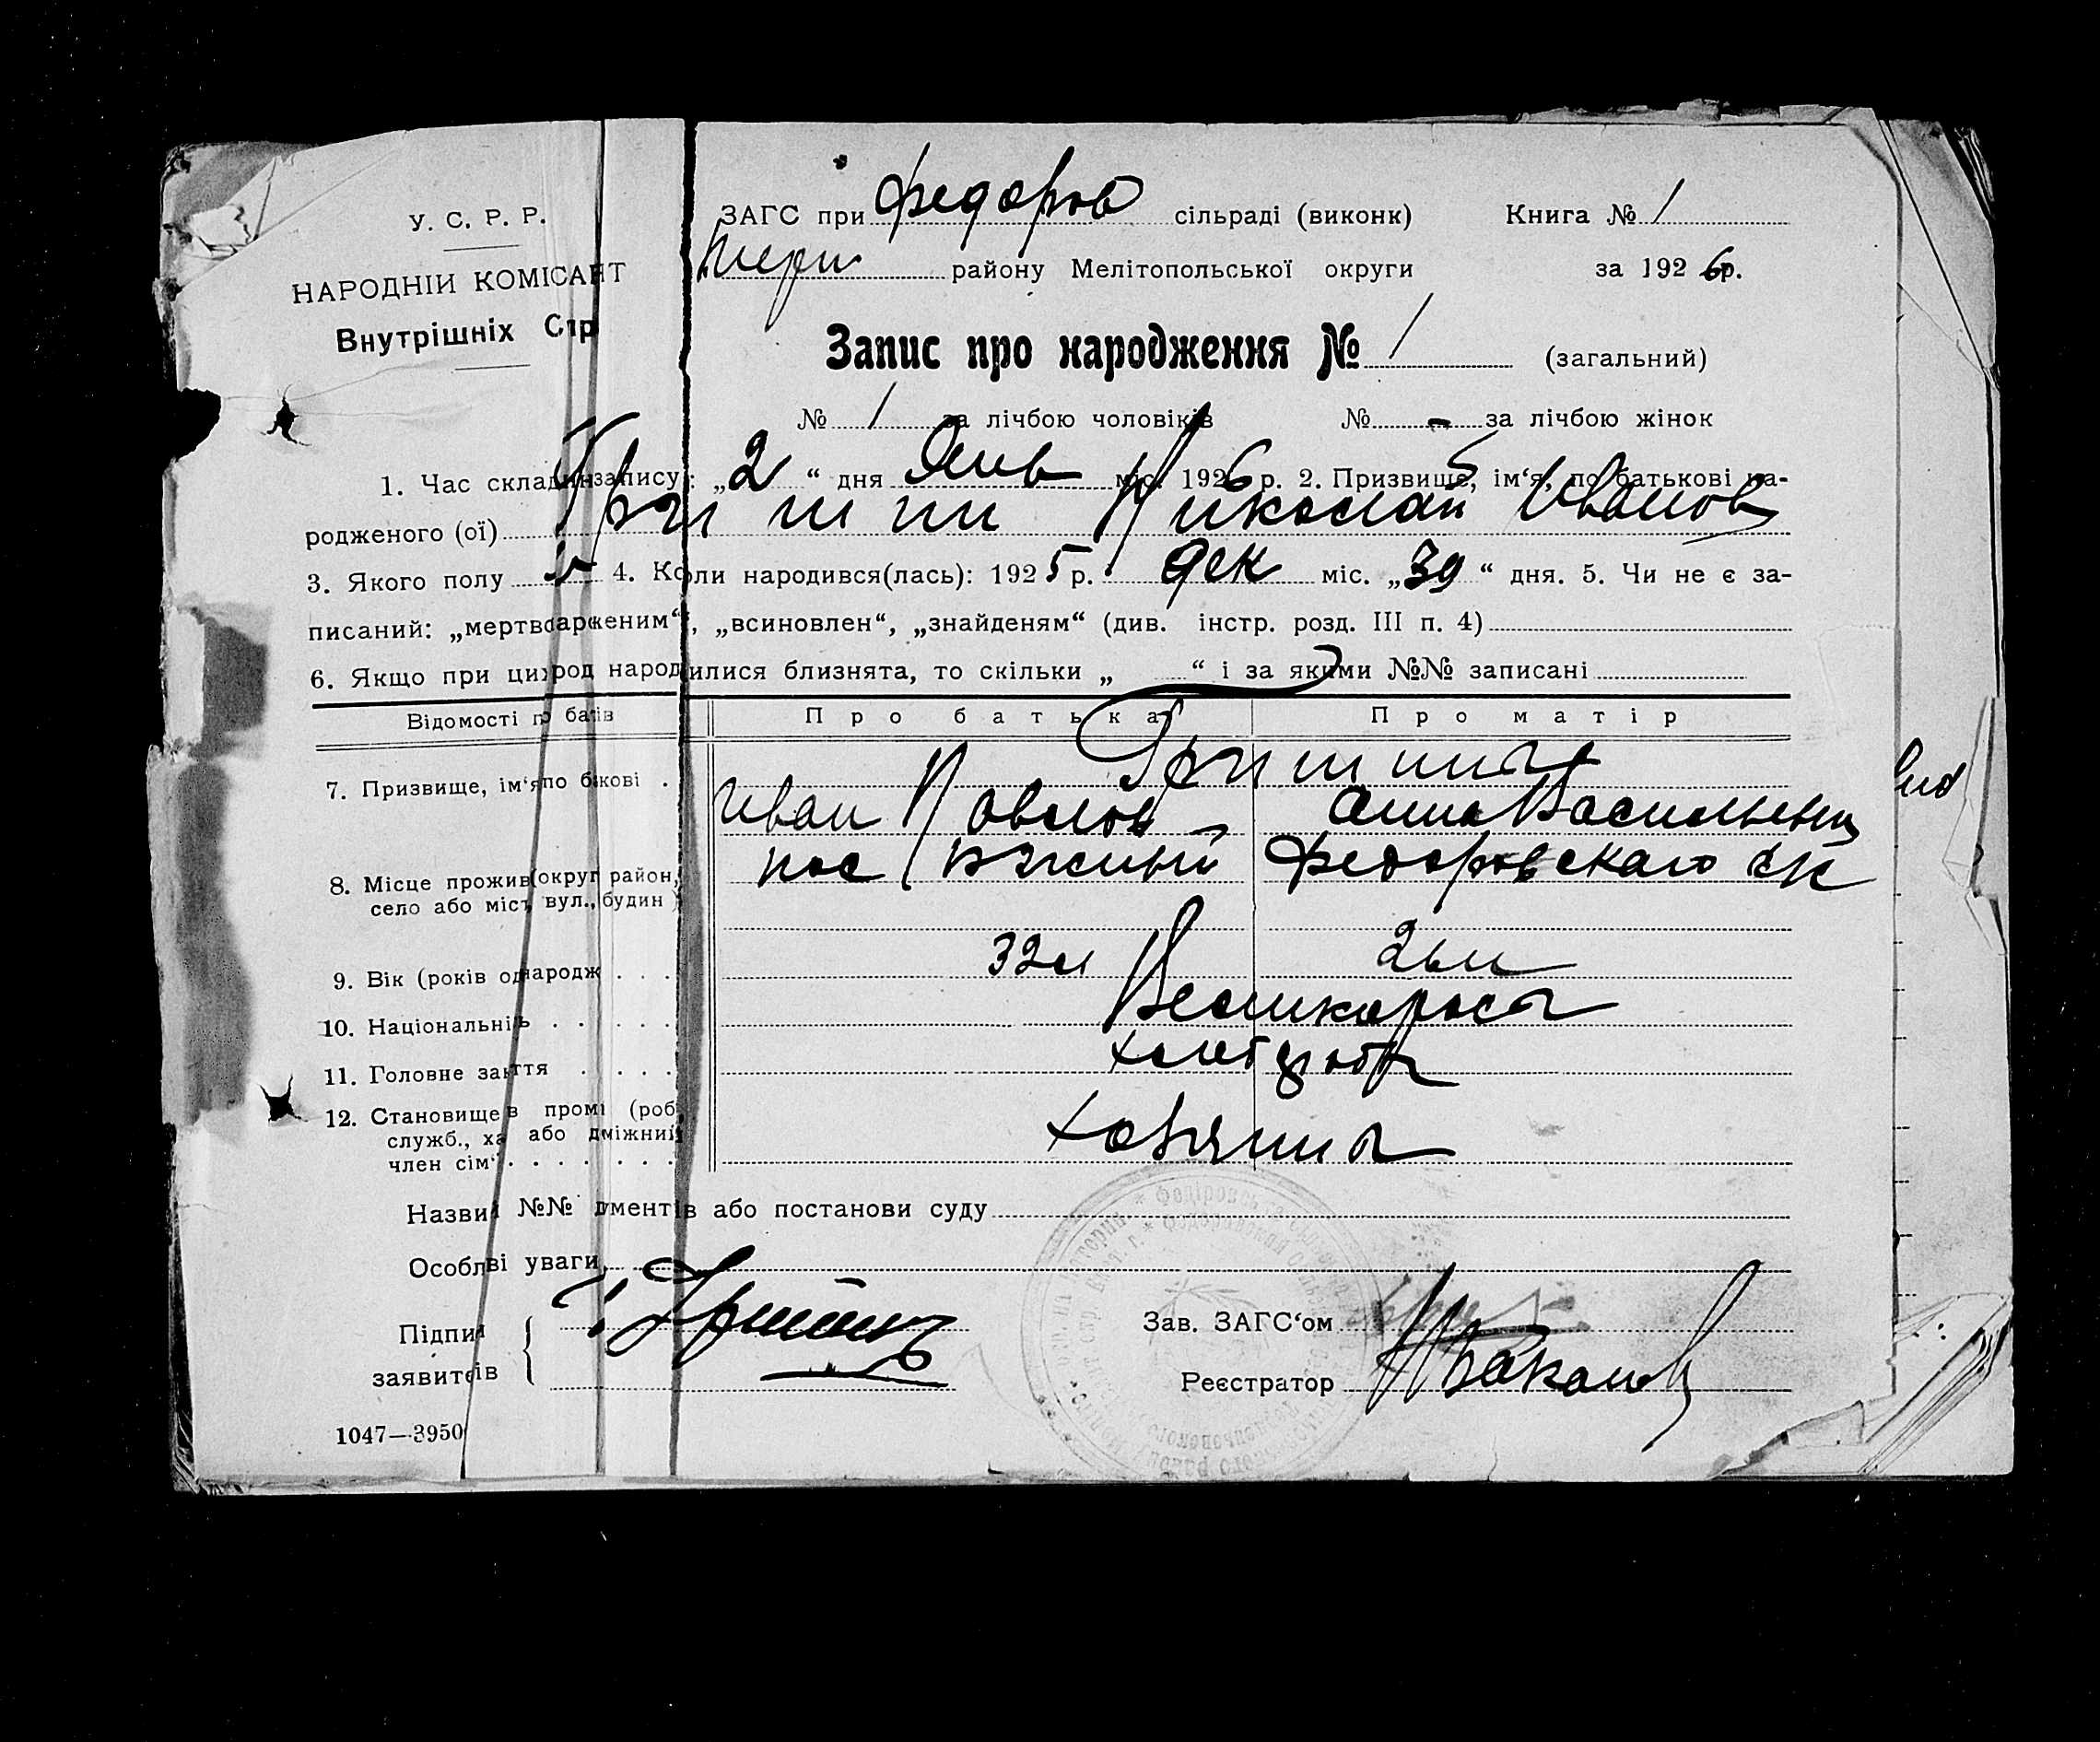 У. С. Р. Р.
НАРОДНІЙ КОМІСАРІЯТ
Внутрішніх Спр
ЗАГС при Федоров сільраді (виконк) Книга № 1
району Мелітопольської округи за 1926 р.
Запис про народження № 1 (загальний)
№ 1 за лічбою чоловіків № - за лічбою жінок
1. Час склад запису: „2“ дня Янв міс. 1926 р. 2. Призвище, ім‘я, по батькові на-
родженого (ої) Гришин Николай Иванов
3. Якого полу 4. Коли народився(лась): 1925 р. дек міс. „30“ дня. 5. Чи не є за-
писаний: „мертвонародженим“, „всиновлен“, „знайденям“ (див. інстр. розд. III п. 4)
6. Якщо при ци род народилися близнята, то скільки „ “ і за якими №№ записані
Відомості п батів Про батька Про матір
Гришины
7. Призвище, ім‘я по б кові . Иван Павлов Анна Васильевна
8. Місце прожив (округ район, село або міст вул., будин ) пос Федоровскаго с/с
9. Вік (років од народж . . . 32 л 26 л
10. Національні ь . . . . . Великоросы
11. Головне за ття . . . . хлебороб
12. Становище в пром (роб. служб., ха або д міжний член сім‘ . . . . . . .
Назви №№ ументів або постанови суду
Особл ві уваги
Підпи
заявит ів
Зав. ЗАГС‘ом
Реєстратор
1047—3950